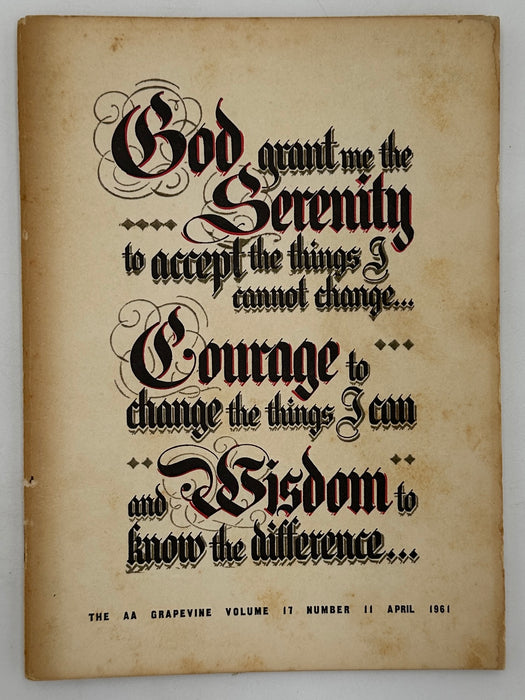 God grant me the
Serenity
to accept the things I
cannot change...
Courage to
change the things I can
and Wisdom to
know the difference...
THE AA GRAPEVINE VOLUME 17 NUMBER 11 APRIL 1961